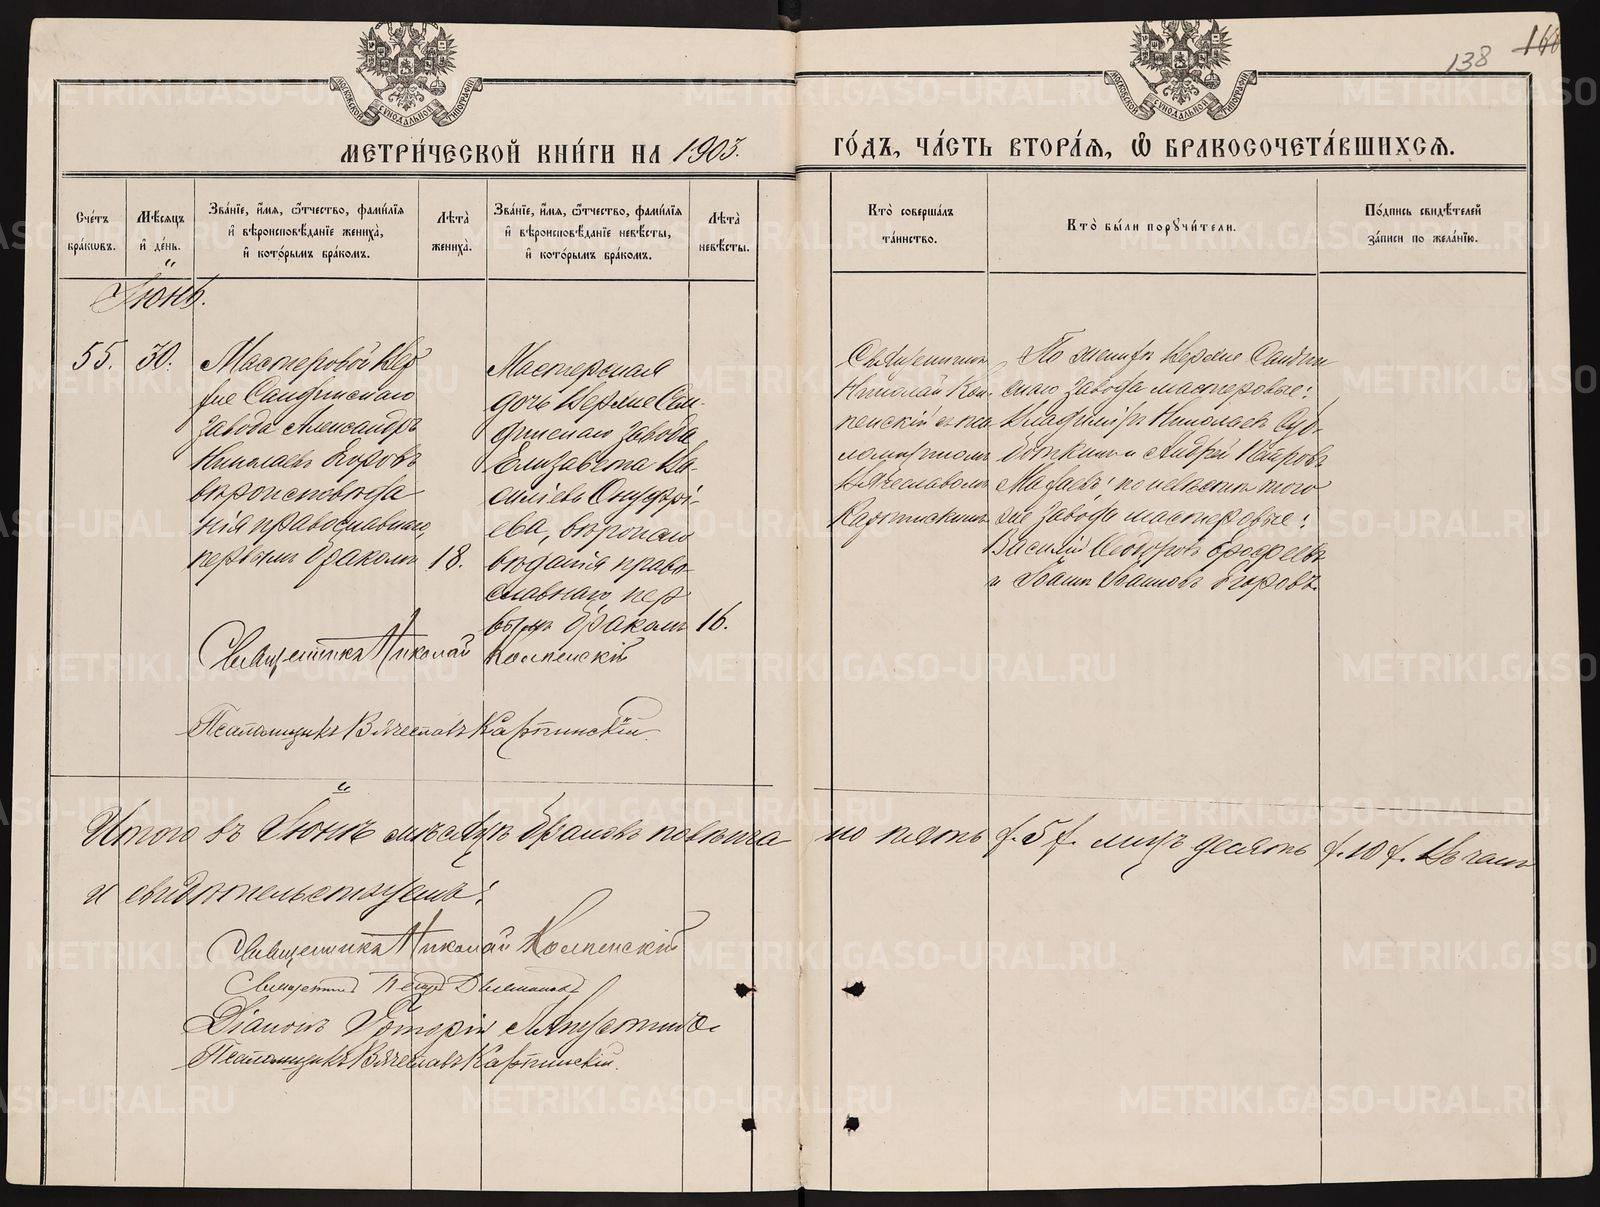 138
МЕТРИ́ЧЕСКОЙ КНИ́ГИ НА 1903.
ГО́ДЪ, ЧА́СТЬ ВТОРА́Я, Ѽ БРАКОСОЧЕТА́ВШИХСЯ.
Сче́тъ бра́ковъ.
Мѣ́сяцъ и́ де́нь.
Зва́нїе, и́мя, ѻ́тчество, фами́лїя и́ вѣроисповѣ́данїе жениха̀, и́ кото́рымъ бра́комъ.
Лѣ́та̀ жениха̀.
Зва́нїе, и́мя, ѻ́тчество, фами́лїя и́ вѣроисповѣ́данїе невѣ́сты, и́ кото́рымъ бра́комъ.
Лѣ́та̀ невѣ́сты.
Кто̀ соверша́лъ та́инство.
Кто̀ бы́ли порꙋчи́тели.
По́дпись свидѣ́телей за́писи по жела́нїю.
Іюнь.
55.
30.
Мастеровой Вер
хне Салдинскаго
завода Александръ
Николаевъ Егоровъ
вѣроисповѣда
нія православнаго,
первымъ бракомъ
18.
Мастерская
дочь Верхне Сал-
динскаго завода
Елизавета Ва-
силіева Онуфрі-
ева, вѣроиспо
вѣданія право
славнаго, пер
вымъ бракомъ
16.
Священникъ
Николай
пенскій съ пса
ломщикомъ
Вячеславомъ
По женихѣ Верхне Салдин
скаго завода мастеровые:
Владиміръ Николаевъ
и Андрей Петровъ
по невѣстѣ того
же завода мастеровые:
Василій Ѳедоровъ Ерофеевъ
и Іоаннъ Іоанновъ Егоровъ.
Священникъ Николай
Псаломщикъ Вячеславъ
Итого въ Іюнѣ мѣсяцѣ браковъ повѣнча
но пять /.5/. лицъ десять /.10/. Въ чемъ
и свидѣтельствуемъ:
Священникъ Николай
Священникъ Петръ
Діаконъ
Псаломщикъ Вячеславъ
METRIKI.GASO-URAL.RU